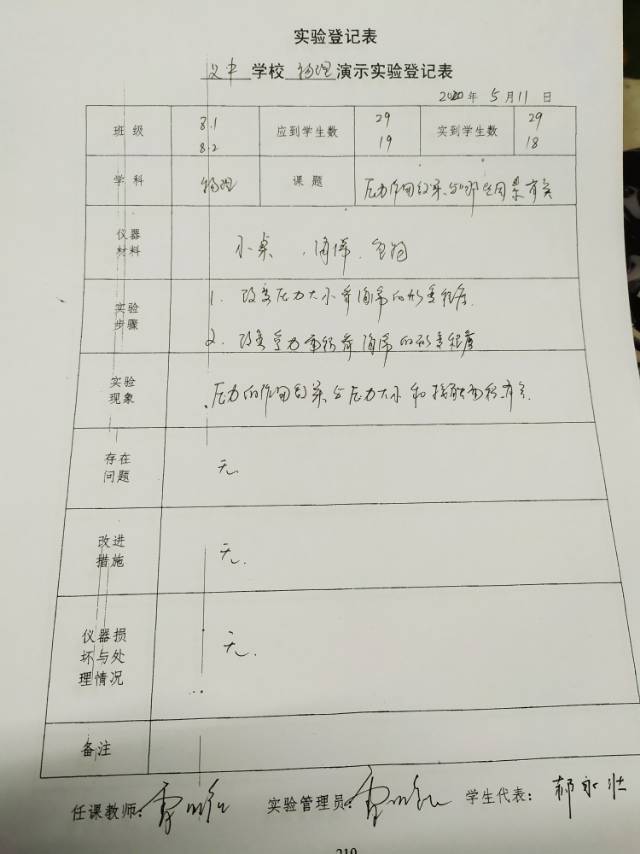 实验登记表
文中 学校 物理 演示实验登记表
2020年 5月11日
班级 8.1 应到学生数 29 实到学生数 29
8.2 19 18
学科 物理 课题 压力作用效果与哪些因素有关
仪器
材料
小桌 、海绵、重物
实验
步骤
1. 改变压力大小看海绵的形变程度.
2. 改变受力面积看海绵的形变程度
实验
现象
压力的作用效果与压力大小和接触面积有关.
存在
问题
无.
改进
措施
无.
仪器损
坏与处
理情况
无.
备注
任课教师:
实验管理员:
学生代表: 郝永壮
219